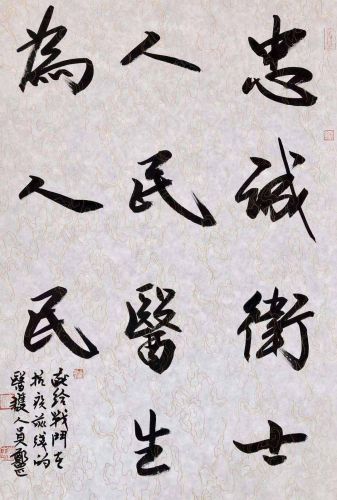 忠誠衛士
人民醫生
為人民
献给戰鬥在
抗疫前线的
醫護人員